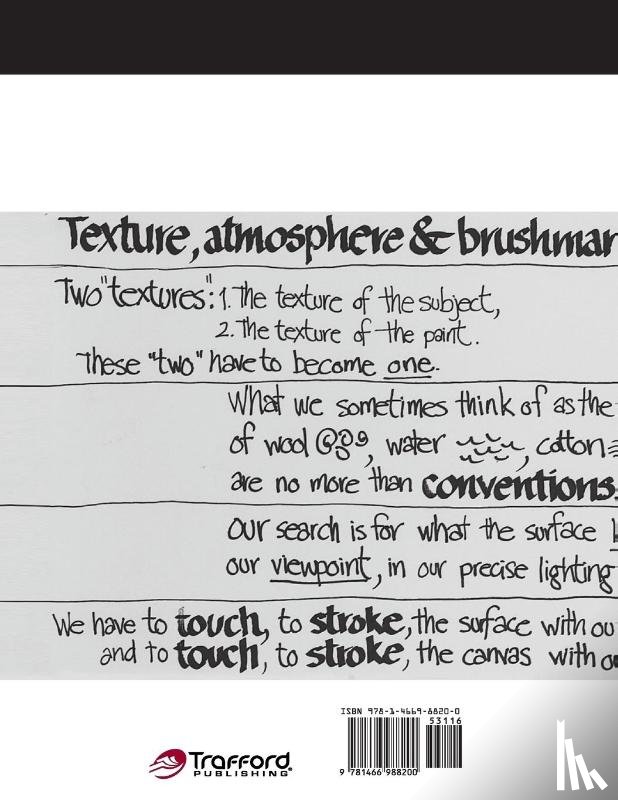 Texture, atmosphere & brushmar
Two "textures": 1. The texture of the subject,
2. The texture of the paint.
These "two" have to become one.
What we sometimes think of as the
of wool, water, cotton
are no more than conventions.
Our search is for what the surface
our viewpoint, in our precise lighting
We have to touch, to stroke, the surface with ou
and to touch, to stroke, the canvas with ou
ISBN 978-1-4669-8820-0
53116
9 781466 988200
Trafford
PUBLISHING